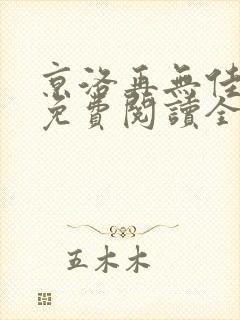 京洛再無佳
免費閱讀全
五木木